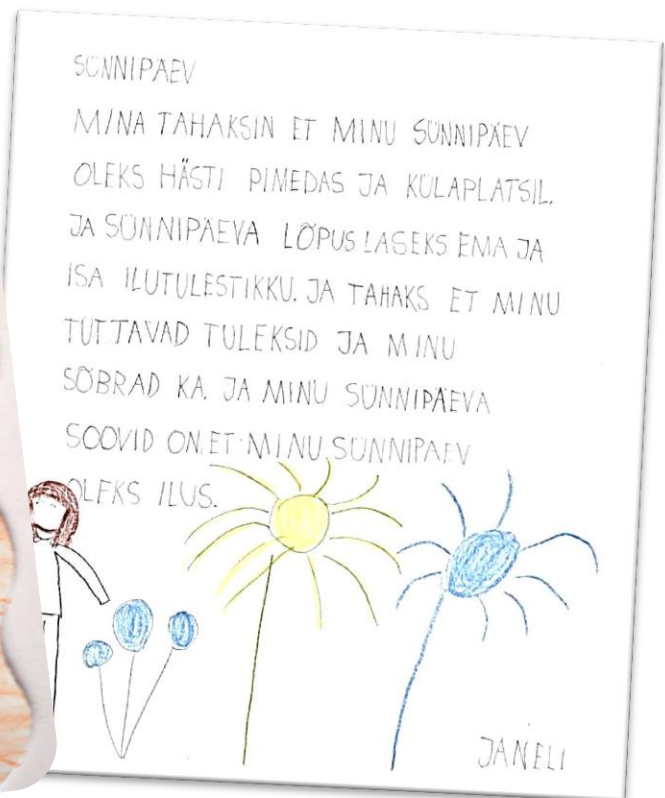 SÜNNIPÄEV
MINA TAHAKSIN ET MINU SÜNNIPÄEV
OLEKS HÄSTI PIMEDAS JA KÜLAPLATSIL.
JA SÜNNIPÄEVA LÕPUS LASEKS EMA JA
ISA ILUTULESTIKKU. JA TAHAKS ET MINU
TUTTAVAD TULEKSID JA MINU
SÕBRAD KA. JA MINU SÜNNIPÄEVA
SOOVID ON, ET MINU SÜNNIPÄEV
OLEKS ILUS.
JANELI